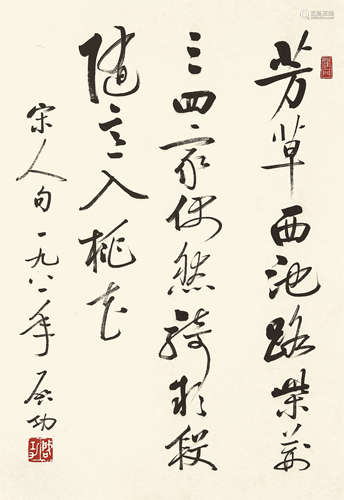 芳草西池路柴荆
三四家偶然骑款段
随意入桃花
宋人句一九八一年启功